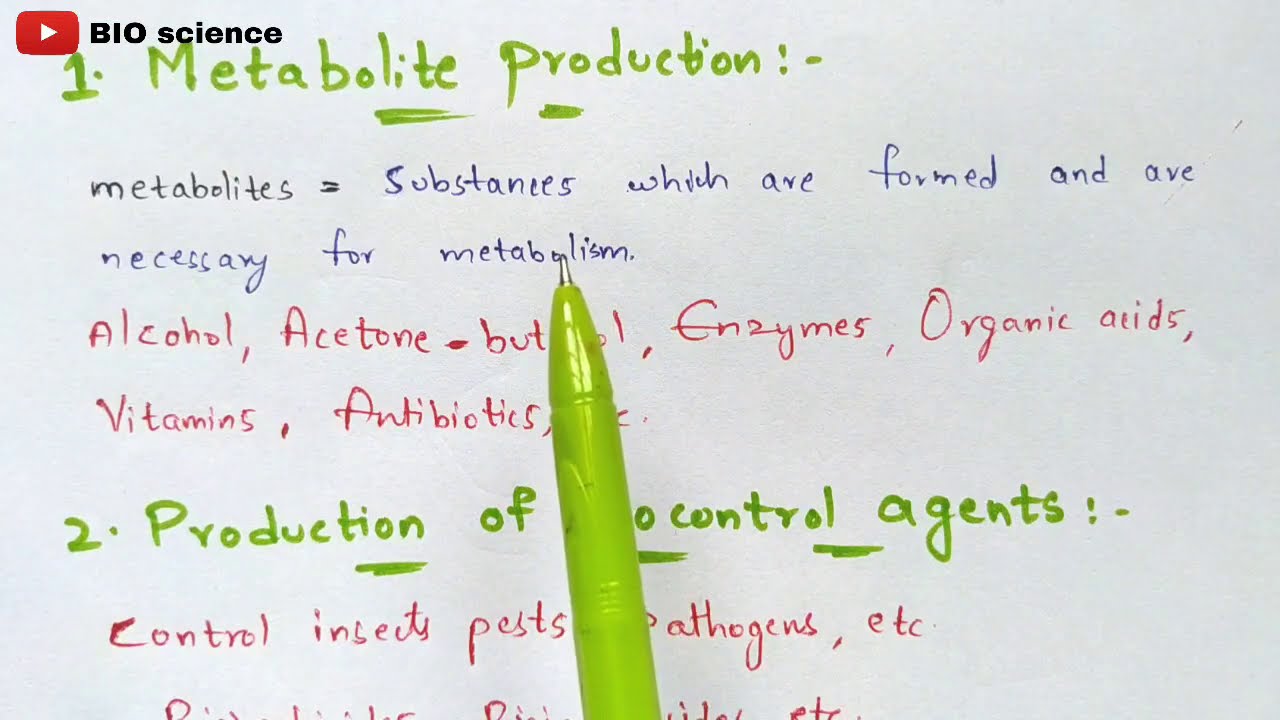 BIO science
1. Metabolite production:-
metabolites = Substances which are formed and are
necessary for metabolism.
Alcohol, Acetone - but ol, Enzymes, Organic acids,
Vitamins, Antibiotics, c.
2. Production of ocontrol agents:-
Control insects pests pathogens, etc.
etc.